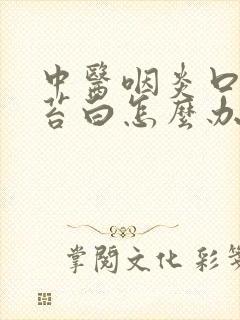 中醫咽炎口
苔白怎麼办
掌閱文化 彩笺